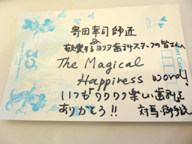 寄田幸司師匠
&
敬愛するヨリタ歯科スタッフの皆さんへ
The Magical
Happiness word!
いつもワクワク楽しい歯科を
ありがとう!!